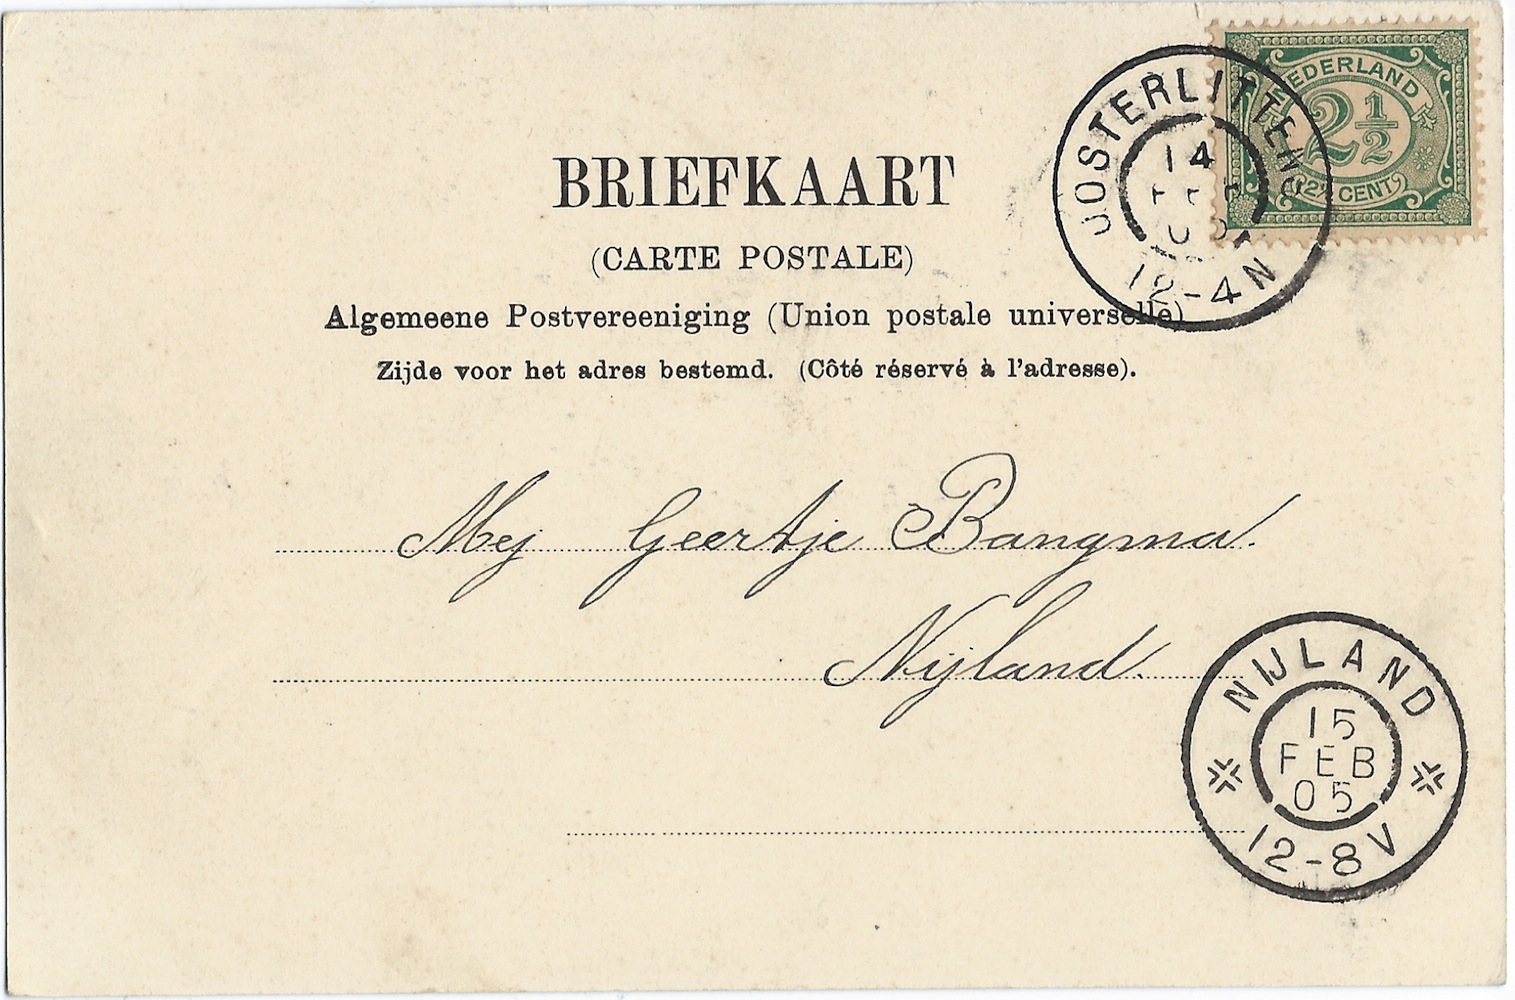 NEDERLAND
2 1/2
2½ CENT
OOSTERLITTENS
14
FEB
05
12-4N
BRIEFKAART
(CARTE POSTALE)
Algemeene Postvereeniging (Union postale universelle)
Zijde voor het adres bestemd. (Côté réservé à l'adresse).
Mej Geertje Bangma.
Nijland.
NIJLAND
15
FEB
05
12-8V